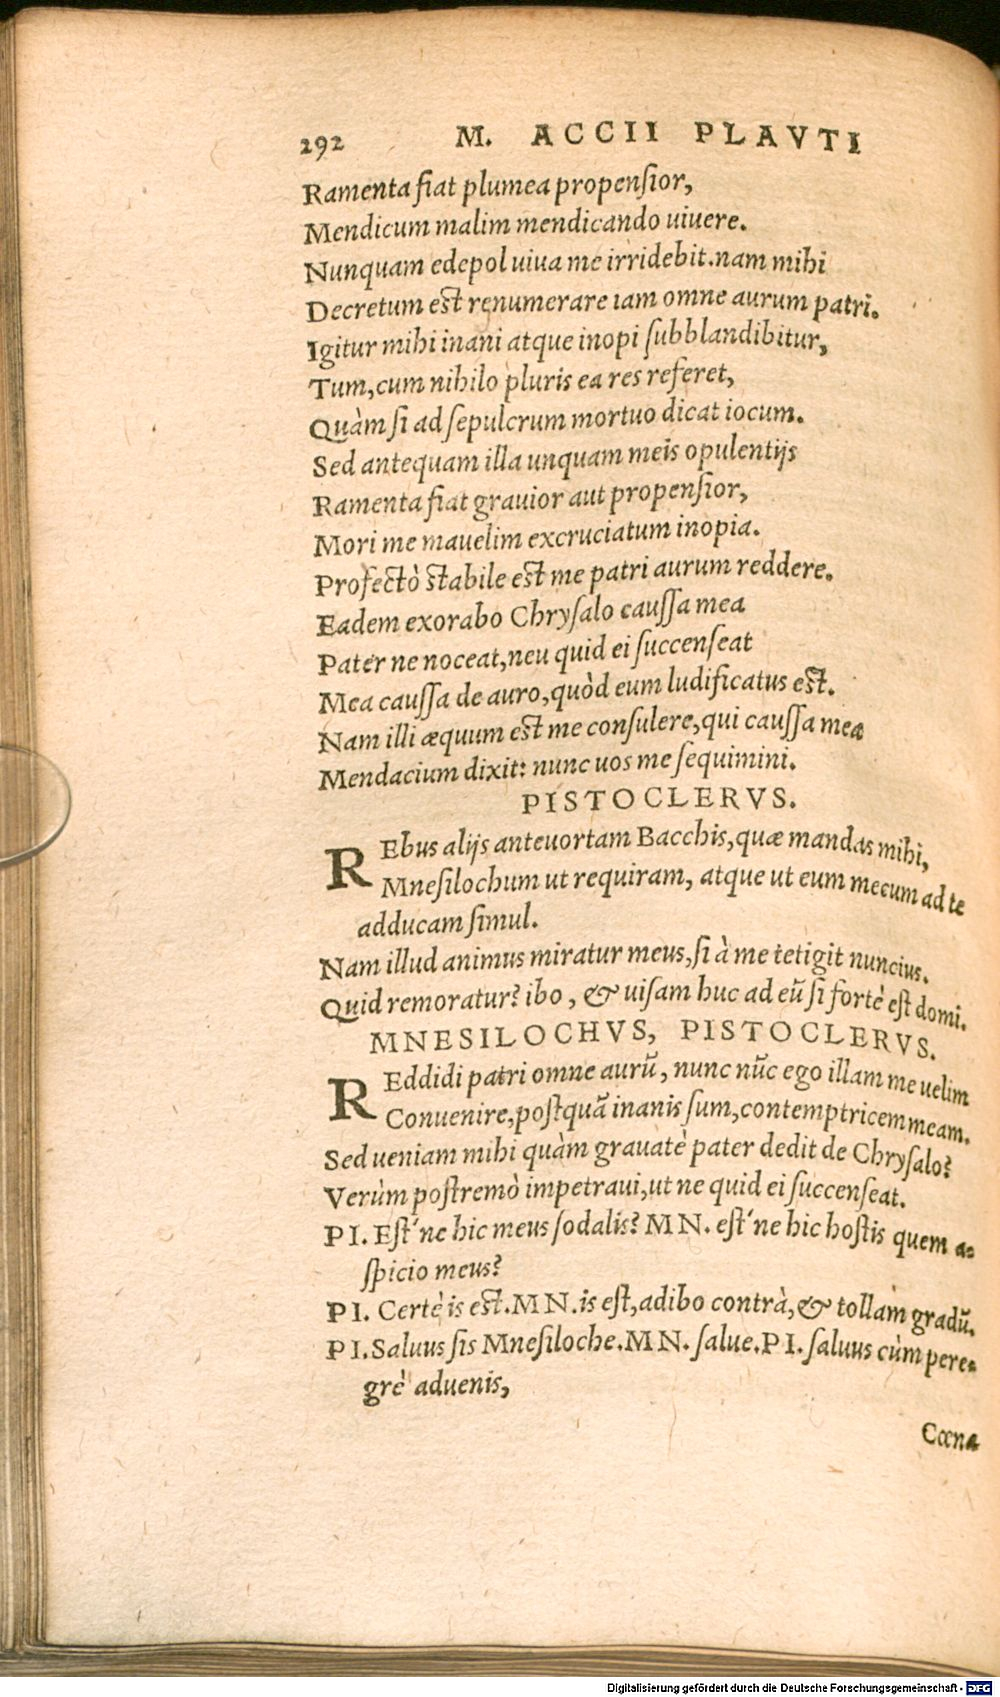 292 M. ACCII PLAVTI
Ramenta fiat plumea propenſior,
Mendicum malim mendicando uiuere.
Nunquam edepol uiua me irridebit.nam mihi
Decretum eſt renumerare iam omne aurum patri.
Igitur mihi inani atque inopi ſubblandibitur,
Tum,cum nihilo pluris ea res referet,
Quàm ſi ad ſepulcrum mortuo dicat iocum.
Sed antequam illa unquam meis opulentijs
Ramenta fiat grauior aut propenſior,
Mori me mauelim excruciatum inopia.
Profectò ſtabile eſt me patri aurum reddere.
Eadem exorabo Chryſalo cauſſa mea
Pater ne noceat,neu quid ei ſuccenſeat
Mea cauſſa de auro,quòd eum ludificatus eſt.
Nam illi æquum eſt me conſulere,qui cauſſa mea
Mendacium dixit: nunc uos me ſequimini.
PISTOCLERVS.
REbus alijs anteuortam Bacchis,quæ mandas mihi,
Mneſilochum ut requiram, atque ut eum mecum ad te
adducam ſimul.
Nam illud animus miratur meus,ſi à me tetigit nuncius.
Quid remoratur? ibo, & uiſam huc ad eũ ſi fortè eſt domi.
MNESILOCHVS, PISTOCLERVS.
REddidi patri omne aurũ, nunc nũc ego illam me uelim
Conuenire,poſtquã inanis ſum,contemptricem meam.
Sed ueniam mihi quàm grauatè pater dedit de Chryſalo?
Verùm poſtremò impetraui,ut ne quid ei ſuccenſeat.
PI. Eſt'ne hic meus ſodalis? MN. eſt'ne hic hoſtis quem a-
ſpicio meus?
PI. Certè is eſt.MN.is eſt,adibo contrà,& tollam gradũ.
PI.Saluus ſis Mneſiloche.MN. ſalue.PI. ſaluus cùm pere-
grè aduenis,
Cœna
Digitalisierung gefördert durch die Deutsche Forschungsgemeinschaft - DFG